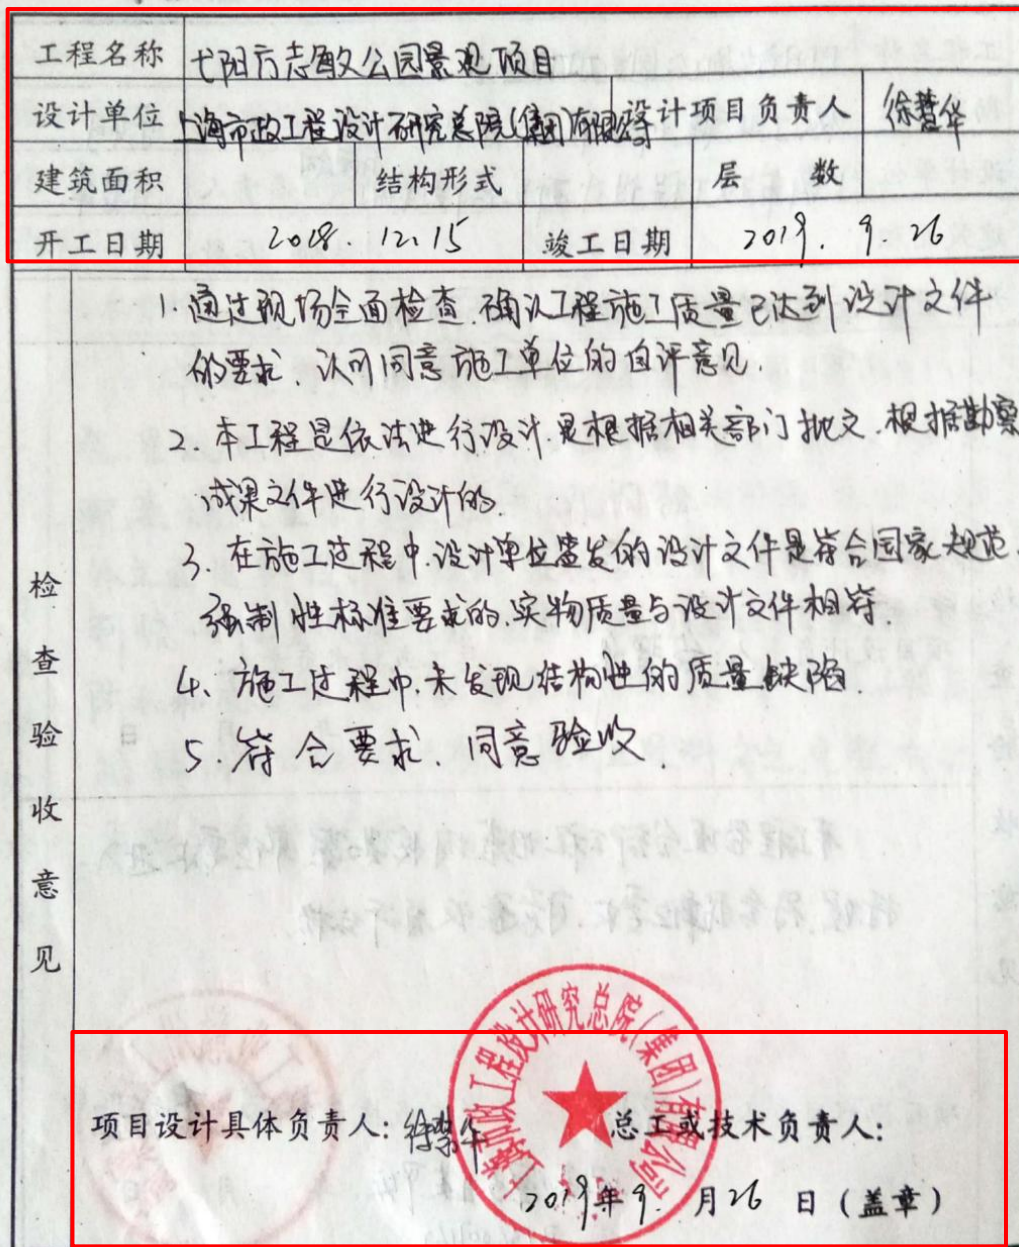 工程名称 弋阳方志敏公园景观项目
设计单位 上海市政工程设计研究总院(集团)有限公司 设计项目负责人 徐慧华
建筑面积 结构形式 层 数
开工日期 2018.12.15 竣工日期 2019.9.26
检查验收意见
1.通过现场全面检查,确认工程施工质量已达到设计文件
的要求、认可同意施工单位的自评意见.
2.本工程是依法进行设计.是根据相关部门批文.根据勘察
成果文件进行设计的.
3.在施工过程中.设计单位签发的设计文件是符合国家规范.
强制性标准要求的.实物质量与设计文件相符.
4、施工过程中.未发现结构性的质量缺陷.
5.符合要求、同意验收.
上海市政工程设计研究总院(集团)有限公司
项目设计具体负责人:徐慧华 总工或技术负责人:
2019年9.月26 日(盖章)